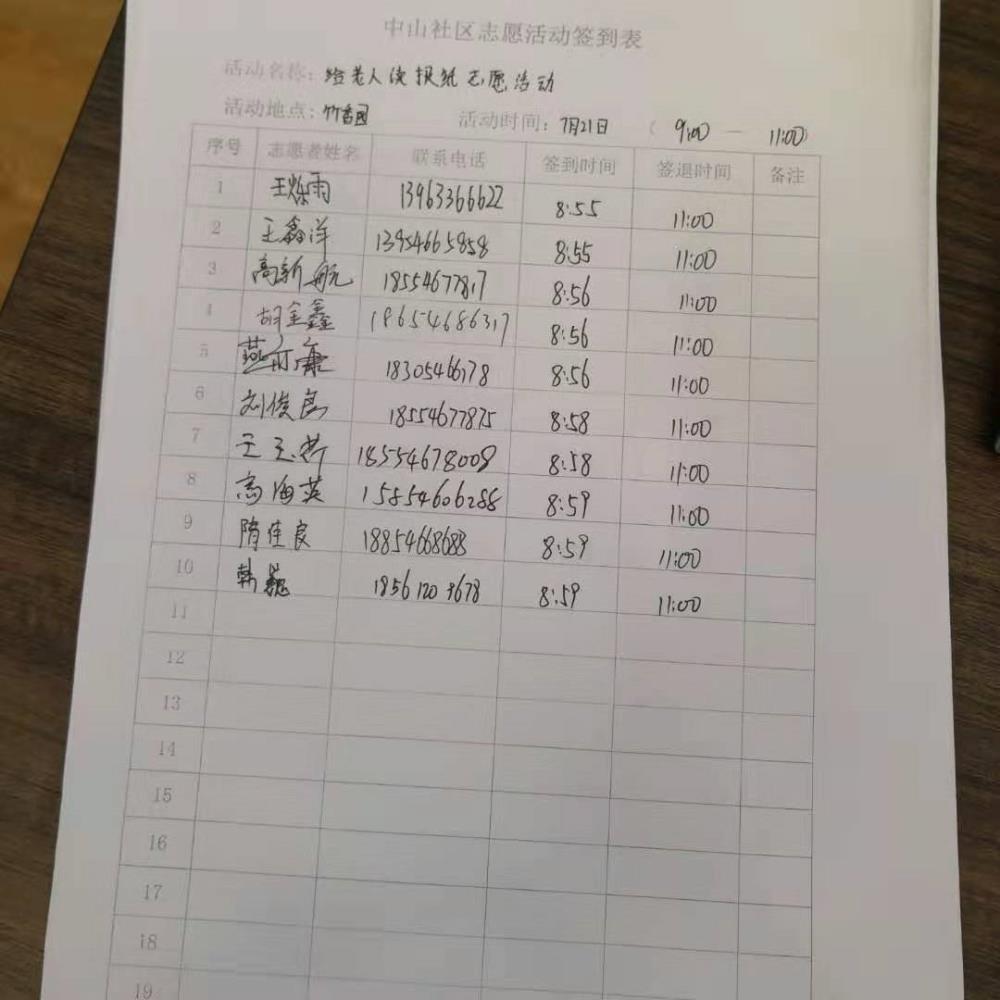 中山社区志愿活动签到表
活动名称：给老人读报纸志愿活动
活动地点：竹香园 活动时间：7月21日 （9:00 — 11:00）
序号 志愿者姓名 联系电话 签到时间 签退时间 备注
1 王烁雨 13963366622 8:55 11:00
2 王鑫洋 13954665958 8:55 11:00
3 高新航 18554677817 8:56 11:00
4 胡金鑫 18654686317 8:56 11:00
5 燕 18305466178 8:56 11:00
6 刘俊良 18554677875 8:58 11:00
7 王 18554678008 8:58 11:00
8 高海英 15854606288 8:59 11:00
9 隋佳良 18854668688 8:59 11:00
10 韩 8:59 11:00
11
12
13
14
15
16
17
18
19